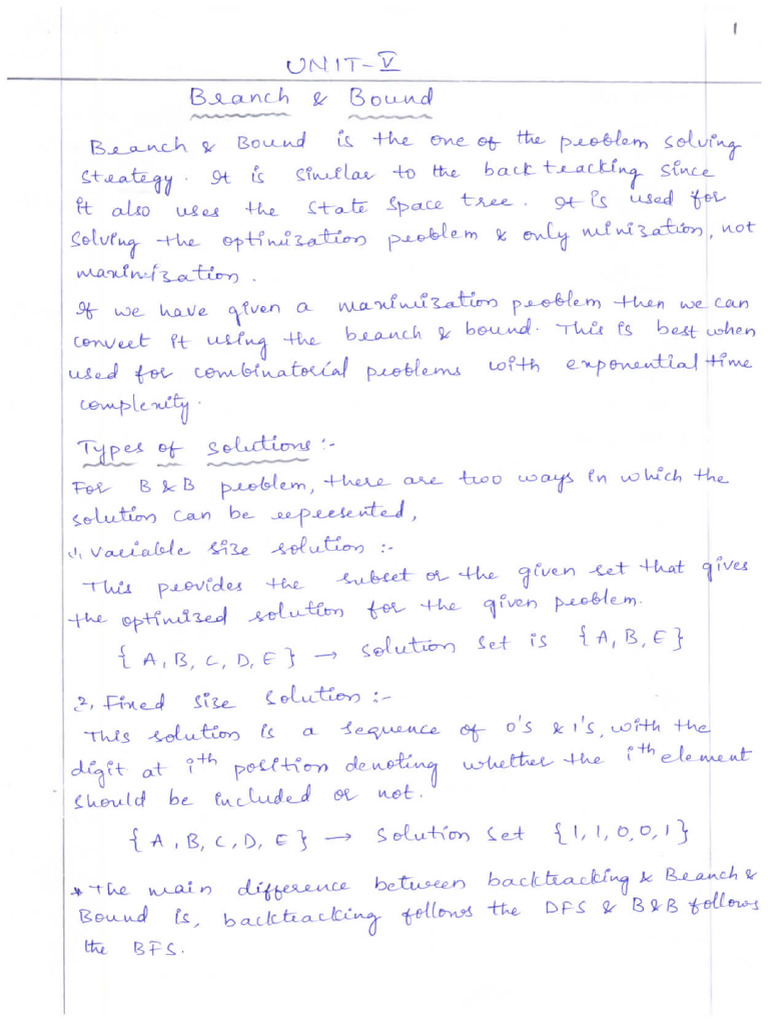 1
UNIT-V
Branch & Bound
Branch & Bound is the one of the problem solving
strategy. It is similar to the back tracking since
it also uses the state space tree. It is used for
solving the optimization problem & only minization, not
maximization.
If we have given a maximization problem then we can
convert it using the branch & bound. This is best when
used for combinatorial problems with exponential time
complexity.
Types of solutions :-
For B & B problem, there are two ways in which the
solution can be represented,
1, Variable size solution :-
This provides the subset or the given set that gives
the optimized solution for the given problem.
{ A, B, C, D, E } → solution set is { A, B, E }
2, Fixed size solution :-
This solution is a sequence of 0's & 1's, with the
digit at ith position denoting whether the ith element
should be included or not.
{ A, B, C, D, E } → solution set { 1, 1, 0, 0, 1 }
* The main difference between backtracking & Branch &
Bound is, backtracking follows the DFS & B&B follows
the BFS.